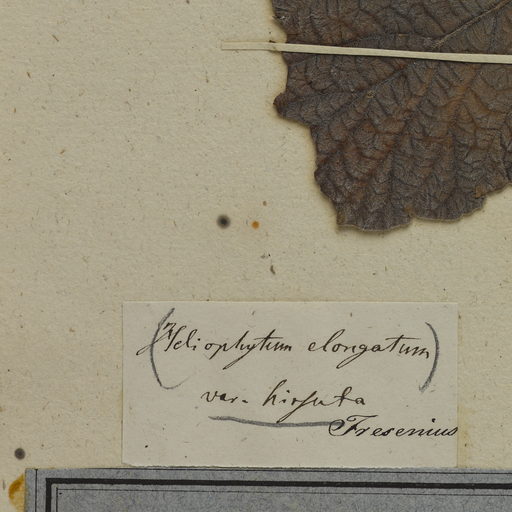 (Heliophytum elongatum)
var. hirsuta
Fresenius